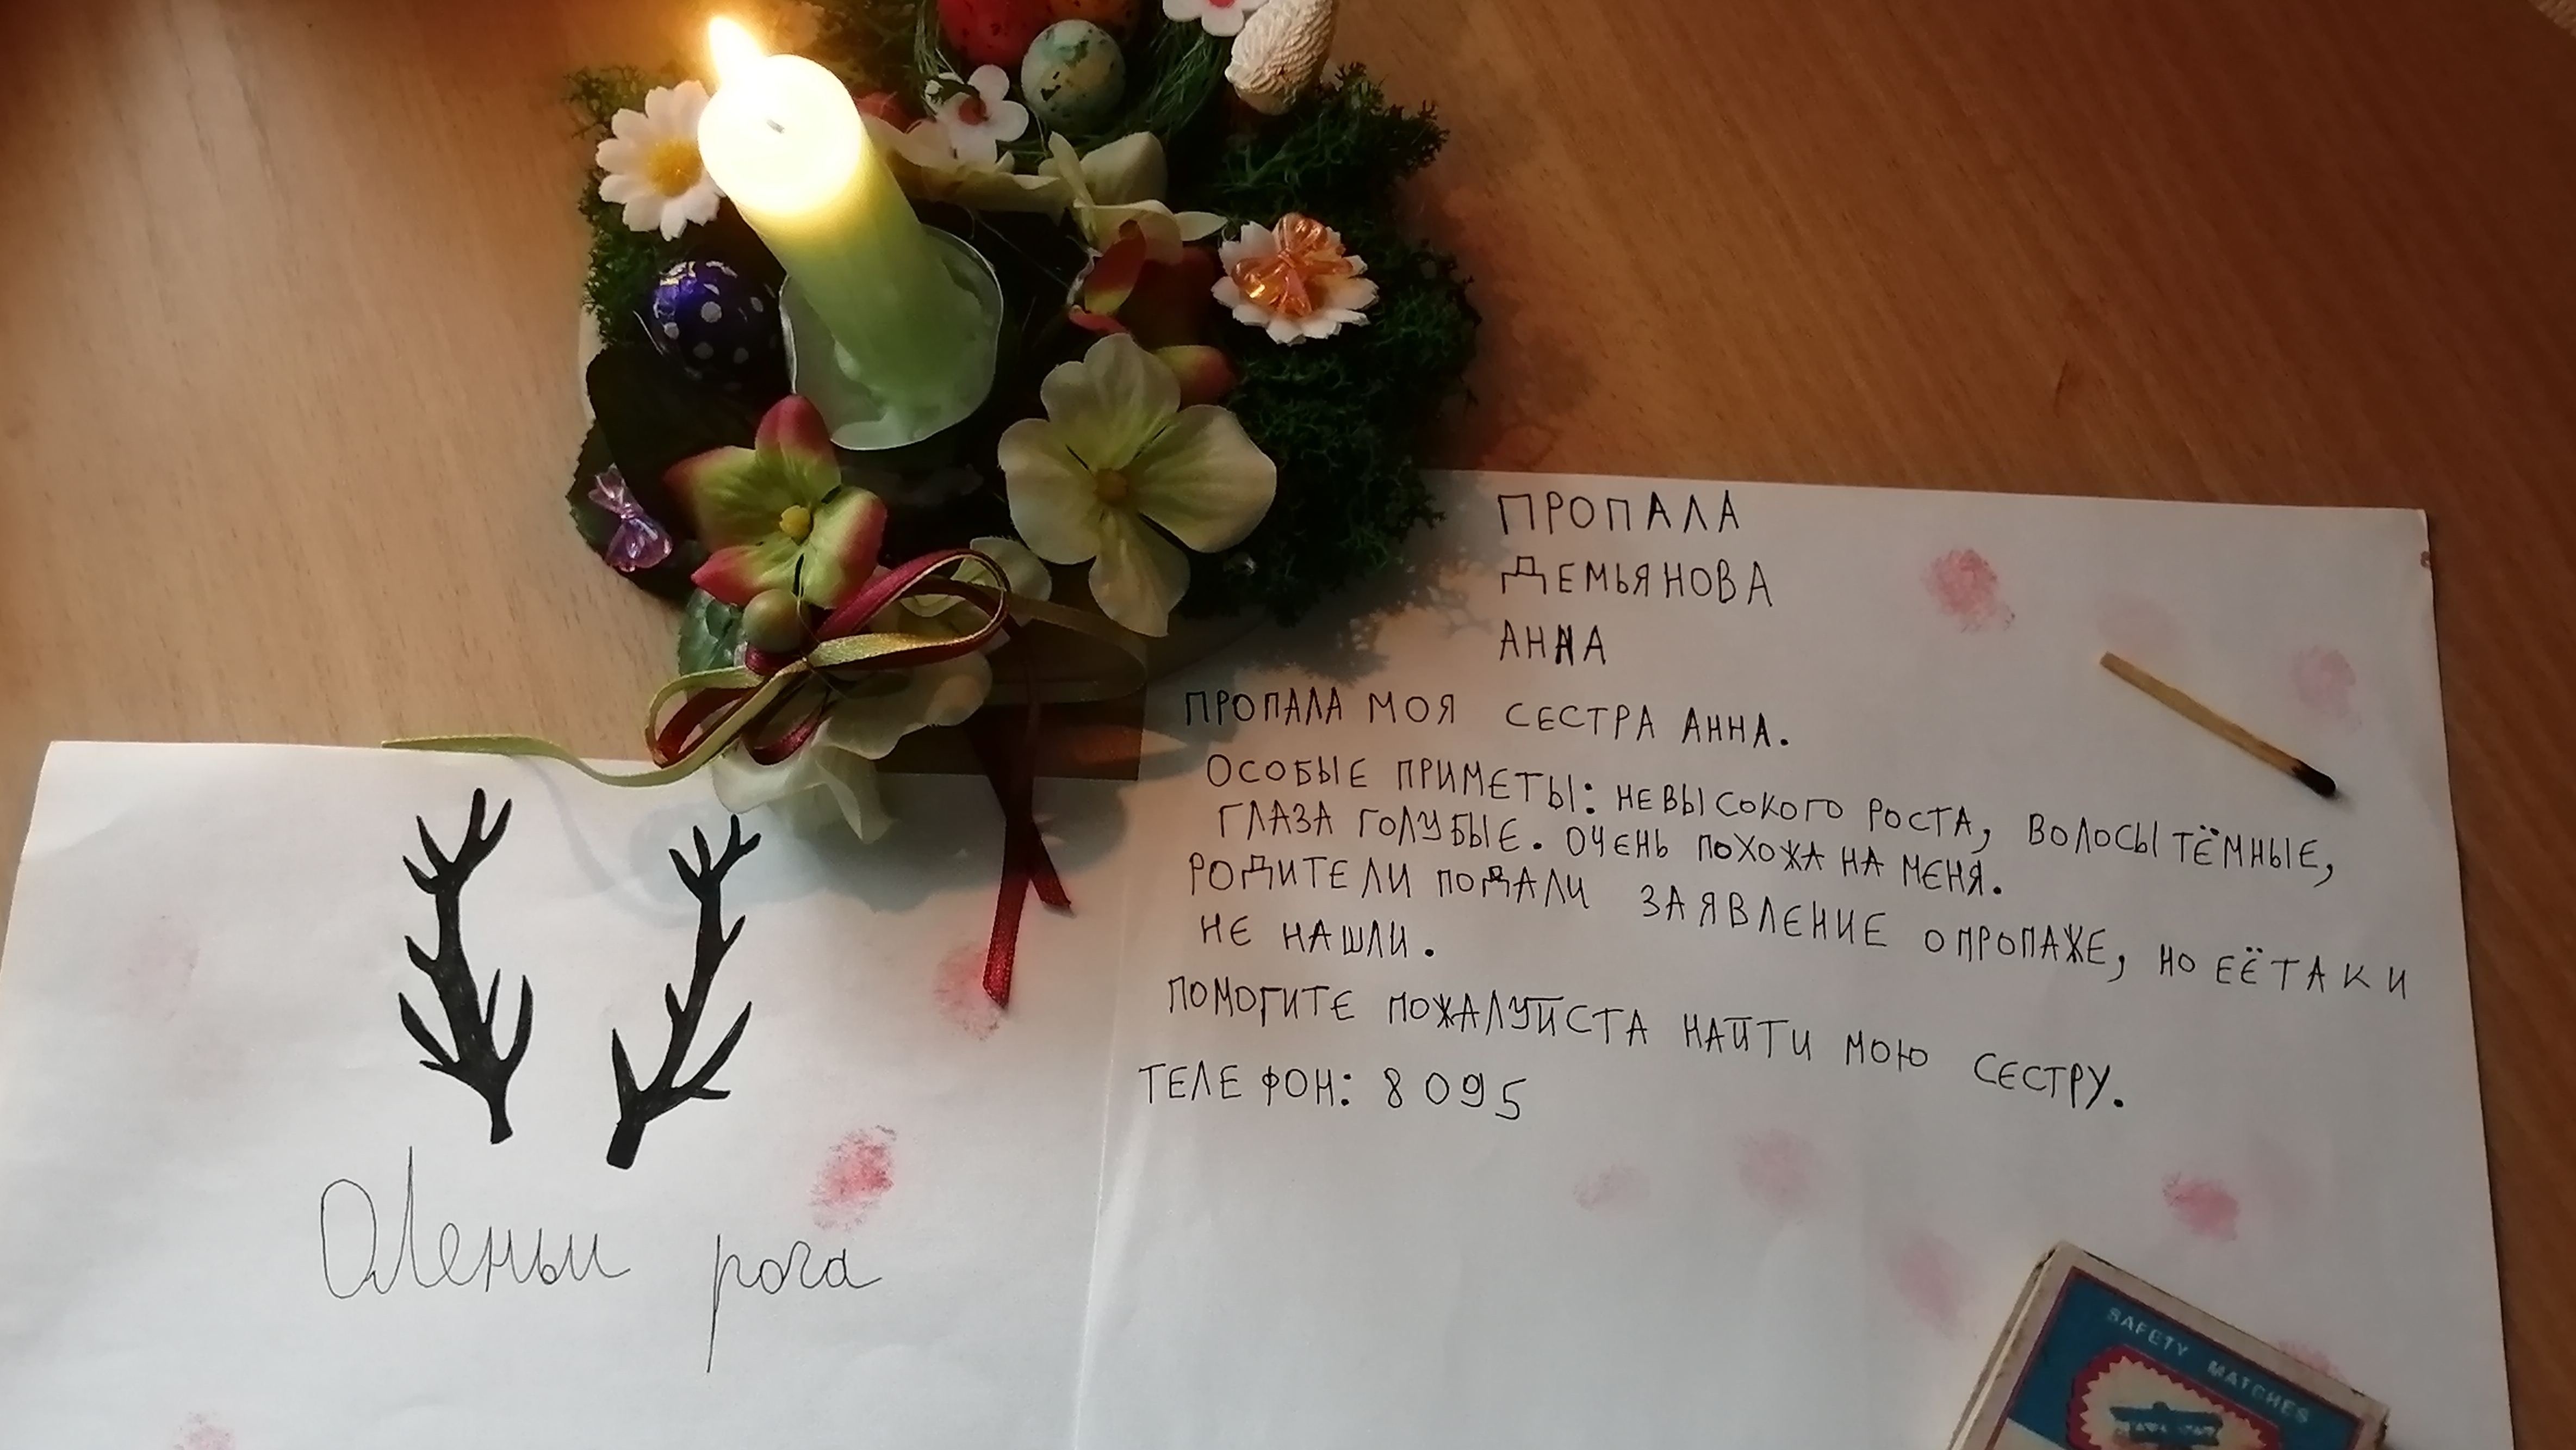 ПРОПАЛА
ДЕМЬЯНОВА
АННА
ПРОПАЛА МОЯ СЕСТРА АННА.
ОСОБЫЕ ПРИМЕТЫ: НЕВЫСОКОГО РОСТА, ВОЛОСЫ ТЁМНЫЕ,
ГЛАЗА ГОЛУБЫЕ. ОЧЕНЬ ПОХОЖА НА МЕНЯ.
РОДИТЕЛИ ПОДАЛИ ЗАЯВЛЕНИЕ О ПРОПАЖЕ, НО ЕЁ ТАК И
НЕ НАШЛИ.
ПОМОГИТЕ ПОЖАЛУЙСТА НАЙТИ МОЮ СЕСТРУ.
ТЕЛЕФОН: 8 095
Оленьи рога
SAFETY MATCHES